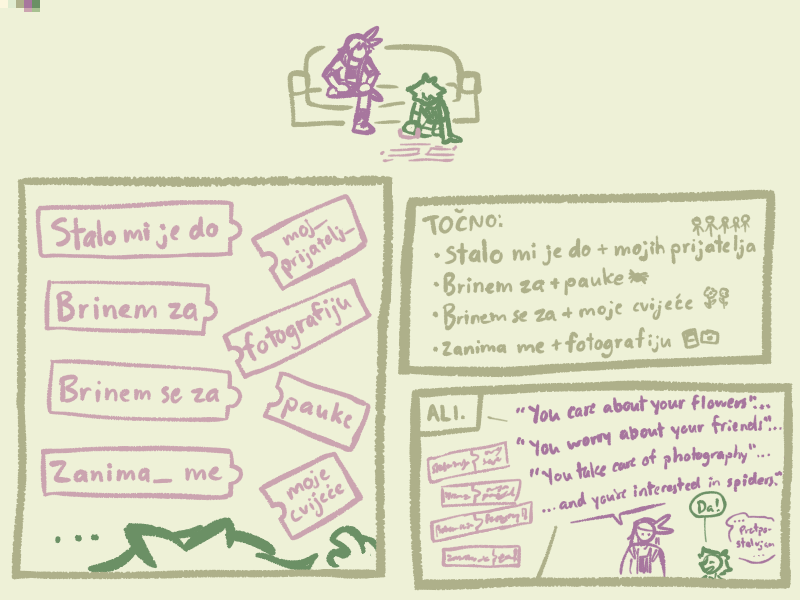 Stalo mi je do
moj_
prijatelj_
Brinem za
fotografiju
Brinem se za
pauke
Zanima_ me
moje
cvijeće
...
TOČNO:
• Stalo mi je do + mojih prijatelja
• Brinem za + pauke
• Brinem se za + moje cvijeće
• Zanima me + fotografiju
ALI.
"You care about your flowers"...
"You worry about your friends"...
"You take care of photography"...
...and you're interested in spiders."
Da!
...
Pretpo-
stavljam
...